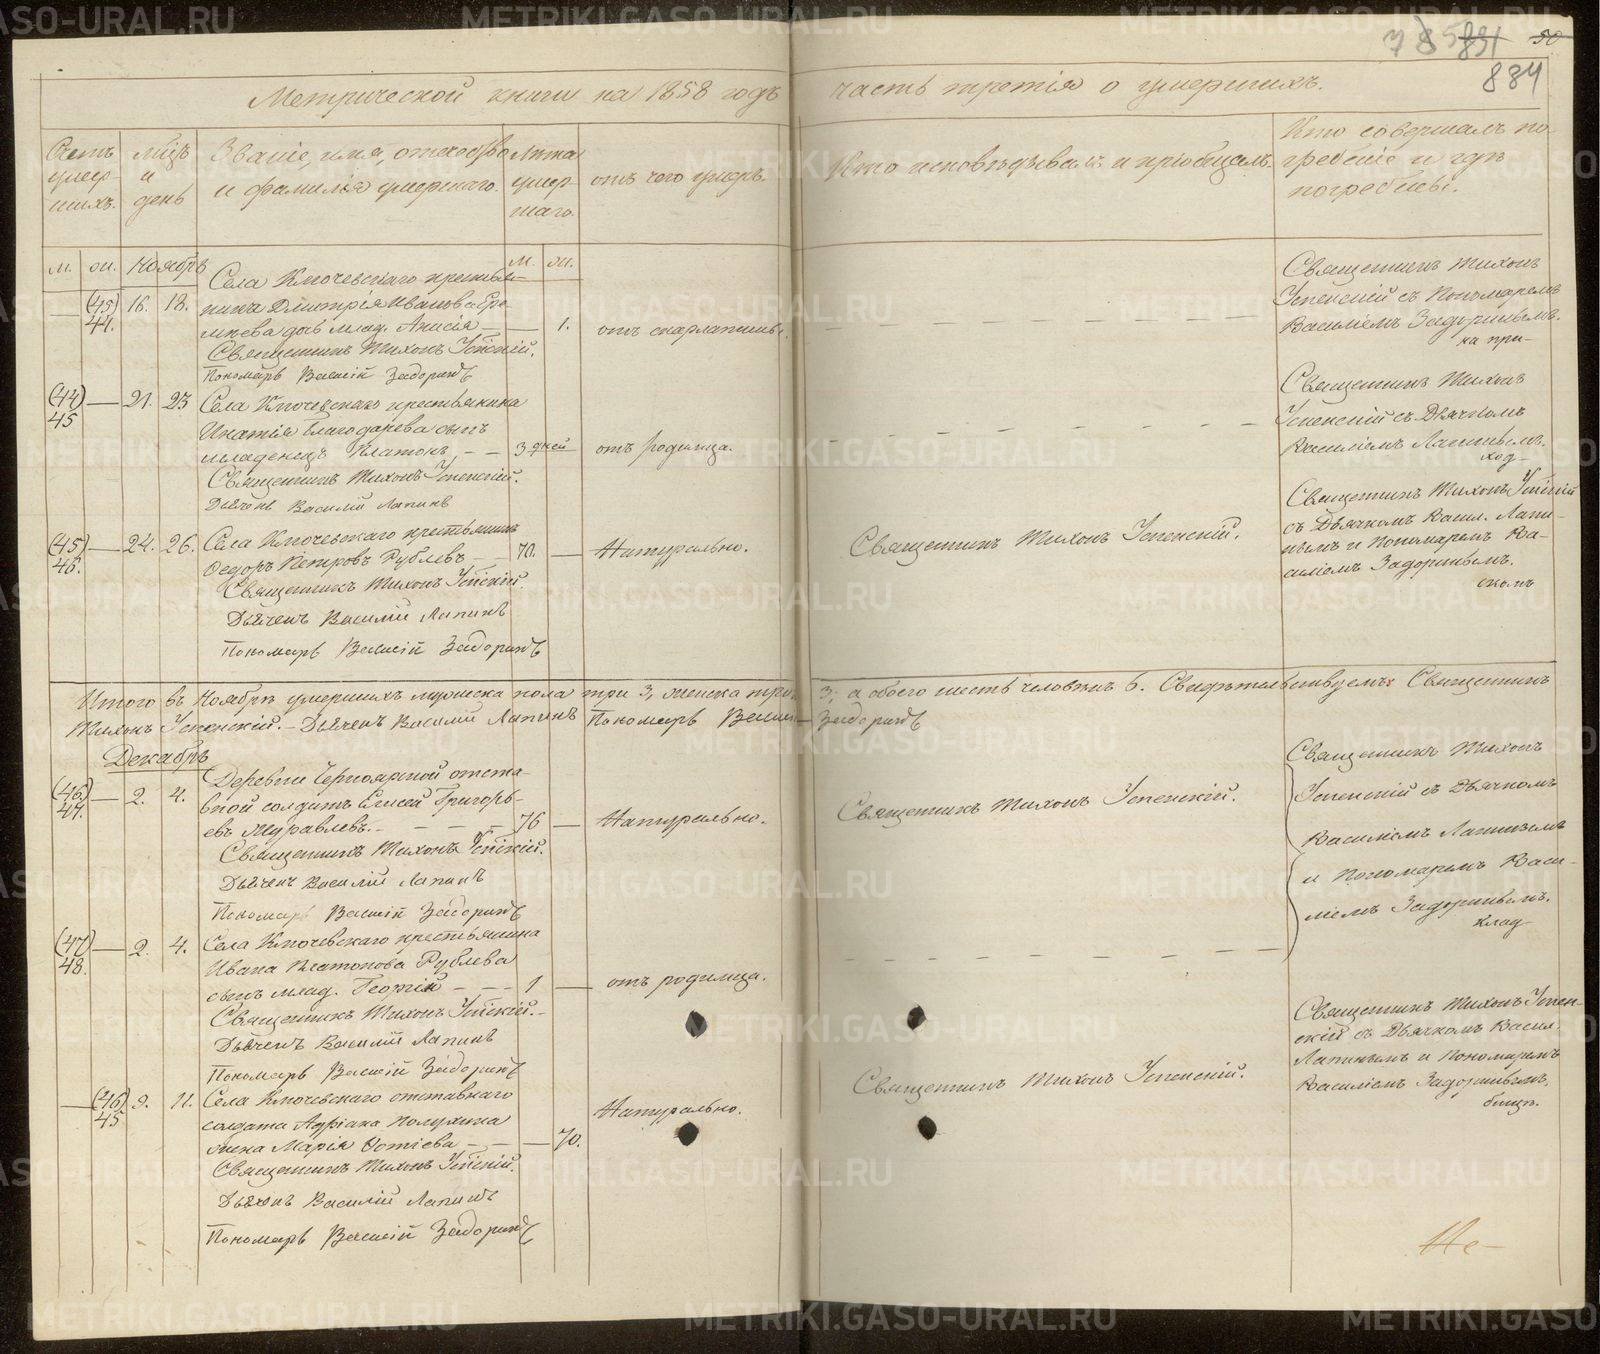 785 891 50
884
Метрической книги на 1858 годъ часть третія о умершихъ.
Счетъ умер-шихъ.
мѣцъ и день
Званіе, имя, отчество и фамилія умершаго.
Лѣта умер-шаго.
отъ чего умеръ.
Кто исповѣдывалъ и пріобщалъ.
Кто совершалъ по-гребеніе и гдѣ погребены.
м. ж. Ноябрь м. ж.
(45) 44. 16. 18.
Села Ключевскаго крестья-
нина Димитрія Иванова
дочь млад. Анисія — — 1.
отъ скарлатины.
Священникъ Тихонъ
Успенскій съ Пономаремъ
Василіемъ Задоринымъ.
на при-
Священникъ Тихонъ Успенскій.
Пономарь Василій Задоринъ
(44) 45 — 21. 23
Села Ключевскаго крестьянина
Игнатія Благодарева сынъ
младенецъ Платонъ, — — 3 дней —
отъ родимца.
Священникъ Тихонъ
Успенскій съ Дьячкомъ
Василіемъ Лапинымъ.
ход-
Священникъ Тихонъ Успенскій.
Дьячекъ Василій Лапинъ
(45) 46. — 24. 26.
Села Ключевскаго крестьянинъ
Федоръ Петровъ Рублевъ — — 70. —
Натурально.
Священникъ Тихонъ Успенскій.
Священникъ Тихонъ Успенскій
съ Дьячкомъ Васил. Лапи-
нымъ и Пономаремъ Ва-
силіемъ Задоринымъ.
скомъ
Священникъ Тихонъ Успенскій.
Дьячекъ Василій Лапинъ
Пономарь Василій Задоринъ
Итого въ Ноябрѣ умершихъ мужеска пола три 3, женска три 3; а обоего шесть человѣкъ 6. Свидѣтельствуемъ: Священникъ
Тихонъ Успенскій. — Дьячекъ Василій Лапинъ Пономарь Василій Задоринъ
Декабрь
(46) 47. — 2. 4.
Деревни Черноярской отста-
вной солдатъ Елисей Григорь-
евъ Журавлевъ. — — — 76 —
Натурально.
Священникъ Тихонъ Успенскій.
Священникъ Тихонъ
Успенскій съ Дьячкомъ
Василіемъ Лапинымъ
и Пономаремъ Васи-
ліемъ Задоринымъ.
клад-
Священникъ Тихонъ Успенскій.
Дьячекъ Василій Лапинъ
Пономарь Василій Задоринъ
(47) 48. — 2. 4.
Села Ключевскаго крестьянина
Ивана Платонова Рублева
сынъ млад. Георгій — — 1 —
отъ родимца.
Священникъ Тихонъ Успенскій.
Дьячекъ Василій Лапинъ
Пономарь Василій Задоринъ
— (46) 45 9. 11.
Села Ключевскаго отставнаго
солдата Адріана Полухина
жена Марія Фотіева — — — 70.
Натурально.
Священникъ Тихонъ Успенскій.
Священникъ Тихонъ Успен-
скій съ Дьячкомъ Васил.
Лапинымъ и Пономаремъ
Василіемъ Задоринымъ.
бищѣ.
Священникъ Тихонъ Успенскій.
Дьячекъ Василій Лапинъ
Пономарь Василій Задоринъ
METRIKI.GASO-URAL.RU